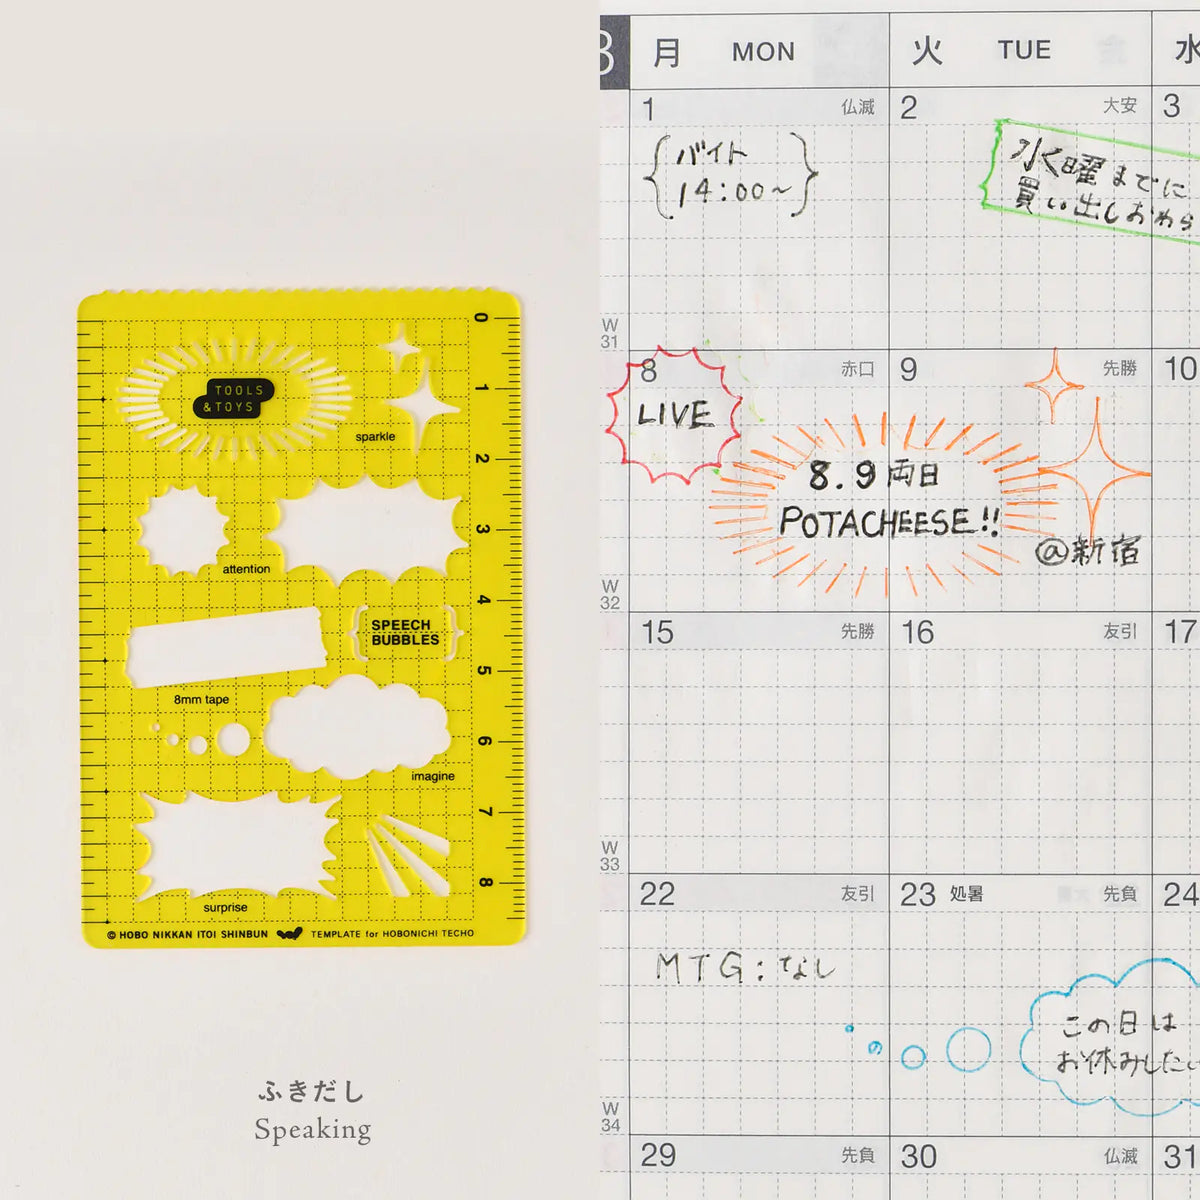 TOOLS
&TOYS
sparkle
attention
SPEECH
BUBBLES
8mm tape
imagine
surprise
0
1
2
3
4
5
6
7
8
© HOBO NIKKAN ITOI SHINBUN TEMPLATE for HOBONICHI TECHO
ふきだし
Speaking
8 月 MON 火 TUE 水
1 仏滅 2 大安 3
バイト
14:00~
水曜までに
買い出しおわら
W
31
8 赤口 9 先勝 10
LIVE
8.9両日
POTACHEESE!!
@新宿
W
32
15 先勝 16 友引 17
W
33
22 友引 23 処暑 先負 24
MTG:なし
この日は
お休みしたい
W
34
29 先負 30 仏滅 31